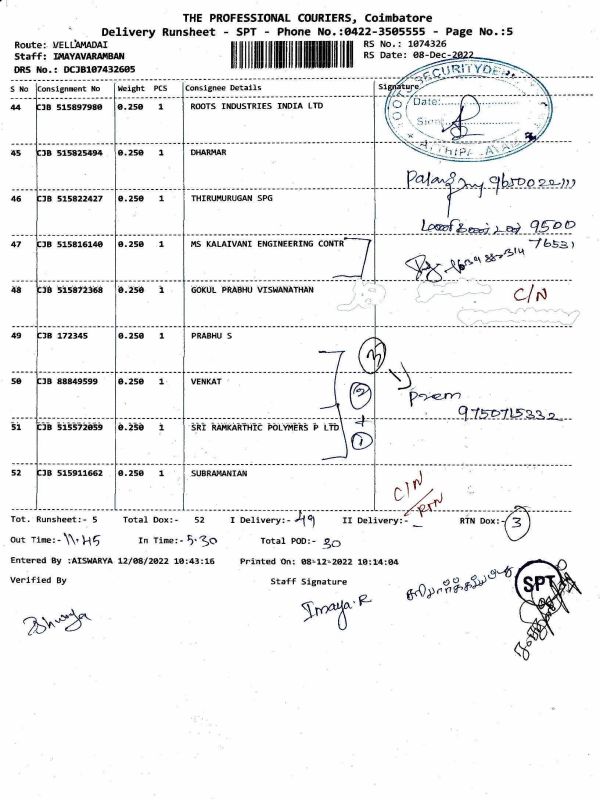 THE PROFESSIONAL COURIERS, Coimbatore
Delivery Runsheet - SPT - Phone No.:0422-3505555 - Page No.:5
Route: VELLAMADAI
RS No.: 1074326
Staff: IMAYAVARAMBAN
RS Date: 08-Dec-2022
DRS No.: DCJB107432605
S No Consignment No Weight PCS Consignee Details Signature
SECURITY
Date:
44 CJB 515897980 0.250 1 ROOTS INDUSTRIES INDIA LTD
45 CJB 515825494 0.250 1 DHARMAR
46 CJB 515822427 0.250 1 THIRUMURUGAN SPG
9500
76531
47 CJB 515816140 0.250 1 MS KALAIVANI ENGINEERING CONTR
48 CJB 515872368 0.250 1 GOKUL PRABHU VISWANATHAN C/N
49 CJB 172345 0.250 1 PRABHU S
3
50 CJB 88849599 0.250 1 VENKAT 2 Prem
9750715332
51 CJB 515572059 0.250 1 SRI RAMKARTHIC POLYMERS P LTD 1
52 CJB 515911662 0.250 1 SUBRAMANIAN
C/N
RTN
Tot. Runsheet:- 5 Total Dox:- 52 I Delivery:- 49 II Delivery:- - RTN Dox:- 3
Out Time:- 11.45 In Time:- 5.30 Total POD:- 30
Entered By :AISWARYA 12/08/2022 10:43:16 Printed On: 08-12-2022 10:14:04
Verified By Staff Signature
SPT
Imaya.R